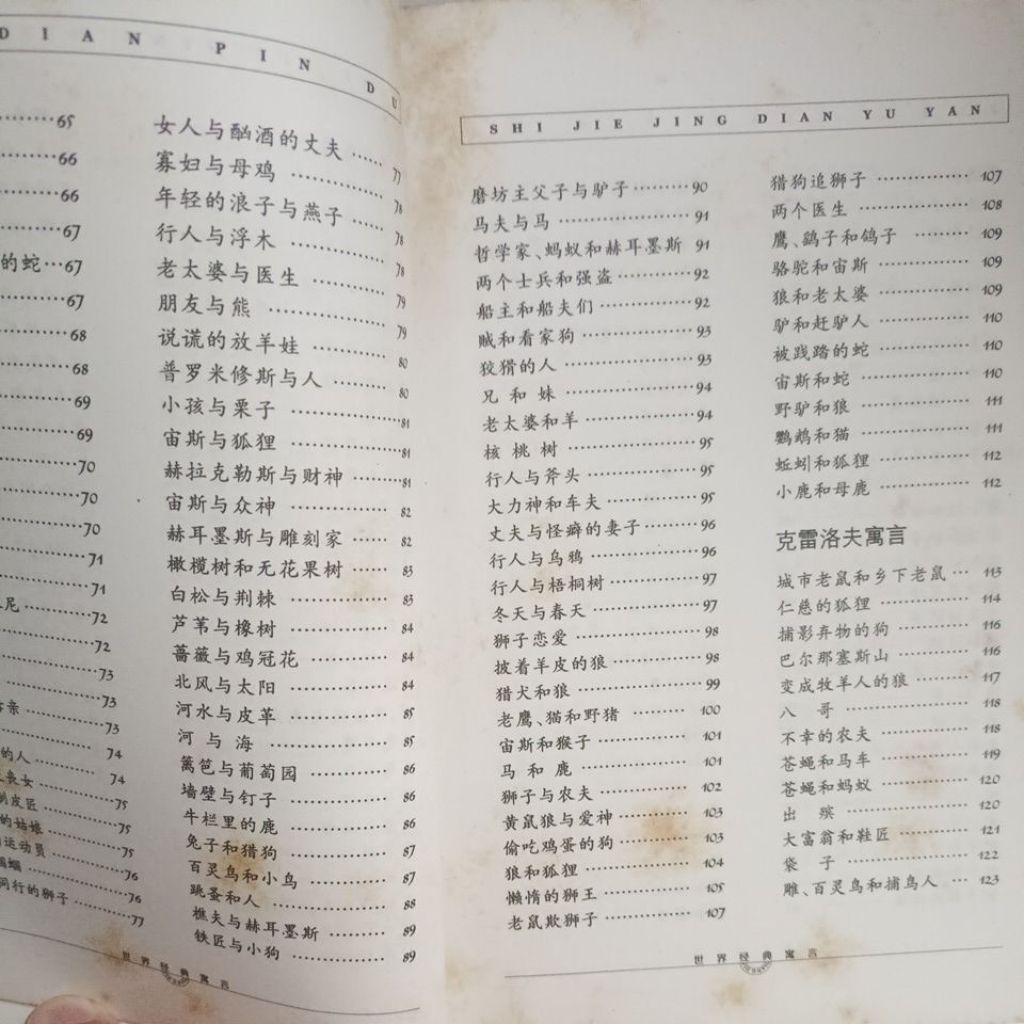 DIAN PIN DU
……65
……66
……66
……67
的蛇…67
……67
……68
……68
……69
……69
……70
……70
……70
……71
……71
尼……72
……72
……73
……73
亲……73
……74
的人……74
丧女……75
皮匠……75
的姑娘……75
运动员……76
……76
同行的狮子……77
女人与酗酒的丈夫……77
寡妇与母鸡……78
年轻的浪子与燕子……78
行人与浮木……78
老太婆与医生……79
朋友与熊……79
说谎的放羊娃……80
普罗米修斯与人……80
小孩与栗子……81
宙斯与狐狸……81
赫拉克勒斯与财神……81
宙斯与众神……82
赫耳墨斯与雕刻家……82
橄榄树和无花果树……83
白松与荆棘……83
芦苇与橡树……84
蔷薇与鸡冠花……84
北风与太阳……84
河水与皮革……85
河与海……85
篱笆与葡萄园……86
墙壁与钉子……86
牛栏里的鹿……86
兔子和猎狗……87
百灵鸟和小鸟……87
跳蚤和人……88
樵夫与赫耳墨斯……89
铁匠与小狗……89
世界经典寓言
SHI JIE JING DIAN YU YAN
磨坊主父子与驴子……90
马夫与马……91
哲学家、蚂蚁和赫耳墨斯 91
两个士兵和强盗……92
船主和船夫们……92
贼和看家狗……93
狡猾的人……93
兄和妹……94
老太婆和羊……94
核桃树……95
行人与斧头……95
大力神和车夫……95
丈夫与怪癖的妻子……96
行人与乌鸦……96
行人与梧桐树……97
冬天与春天……97
狮子恋爱……98
披着羊皮的狼……98
猎犬和狼……99
老鹰、猫和野猪……100
宙斯和猴子……101
马和鹿……101
狮子与农夫……102
黄鼠狼与爱神……103
偷吃鸡蛋的狗……103
狼和狐狸……104
懒惰的狮王……105
老鼠欺狮子……107
猎狗追狮子……107
两个医生……108
鹰、鹞子和鸽子……109
骆驼和宙斯……109
狼和老太婆……109
驴和赶驴人……110
被践踏的蛇……110
宙斯和蛇……110
野驴和狼……111
鹦鹉和猫……111
蚯蚓和狐狸……112
小鹿和母鹿……112
克雷洛夫寓言
城市老鼠和乡下老鼠…113
仁慈的狐狸……114
捕影弃物的狗……116
巴尔那塞斯山……116
变成牧羊人的狼……117
八哥……118
不幸的农夫……118
苍蝇和马车……119
苍蝇和蚂蚁……120
出殡……120
大富翁和鞋匠……121
袋子……122
雕、百灵鸟和捕鸟人…123
世界经典寓言